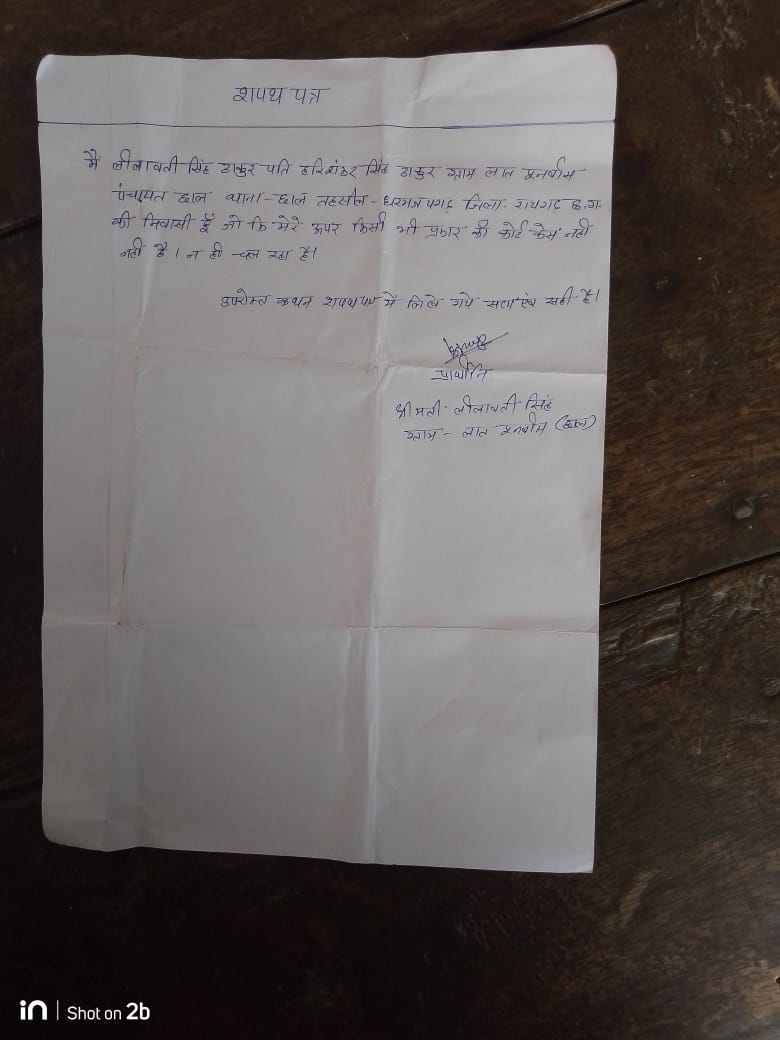 शपथ पत्र
मैं लीलावती सिंह ठाकुर पति हरिशंकर सिंह ठाकुर ग्राम लात पुनर्वास
पंचायत छाल थाना-छाल तहसील-धरमजयगढ़ जिला-रायगढ़ छ.ग.
की निवासी हूँ जो कि मेरे ऊपर किसी भी प्रकार की कोर्ट केस नही
नही है। न ही चल रहा है।
उपरोक्त कथन शपथ पत्र में लिखे गये सत्य एंव सही है।
प्रार्थीनि
श्रीमती-लीलावती सिंह
ग्राम-लात पुनर्वास (छाल)
in | Shot on 2b